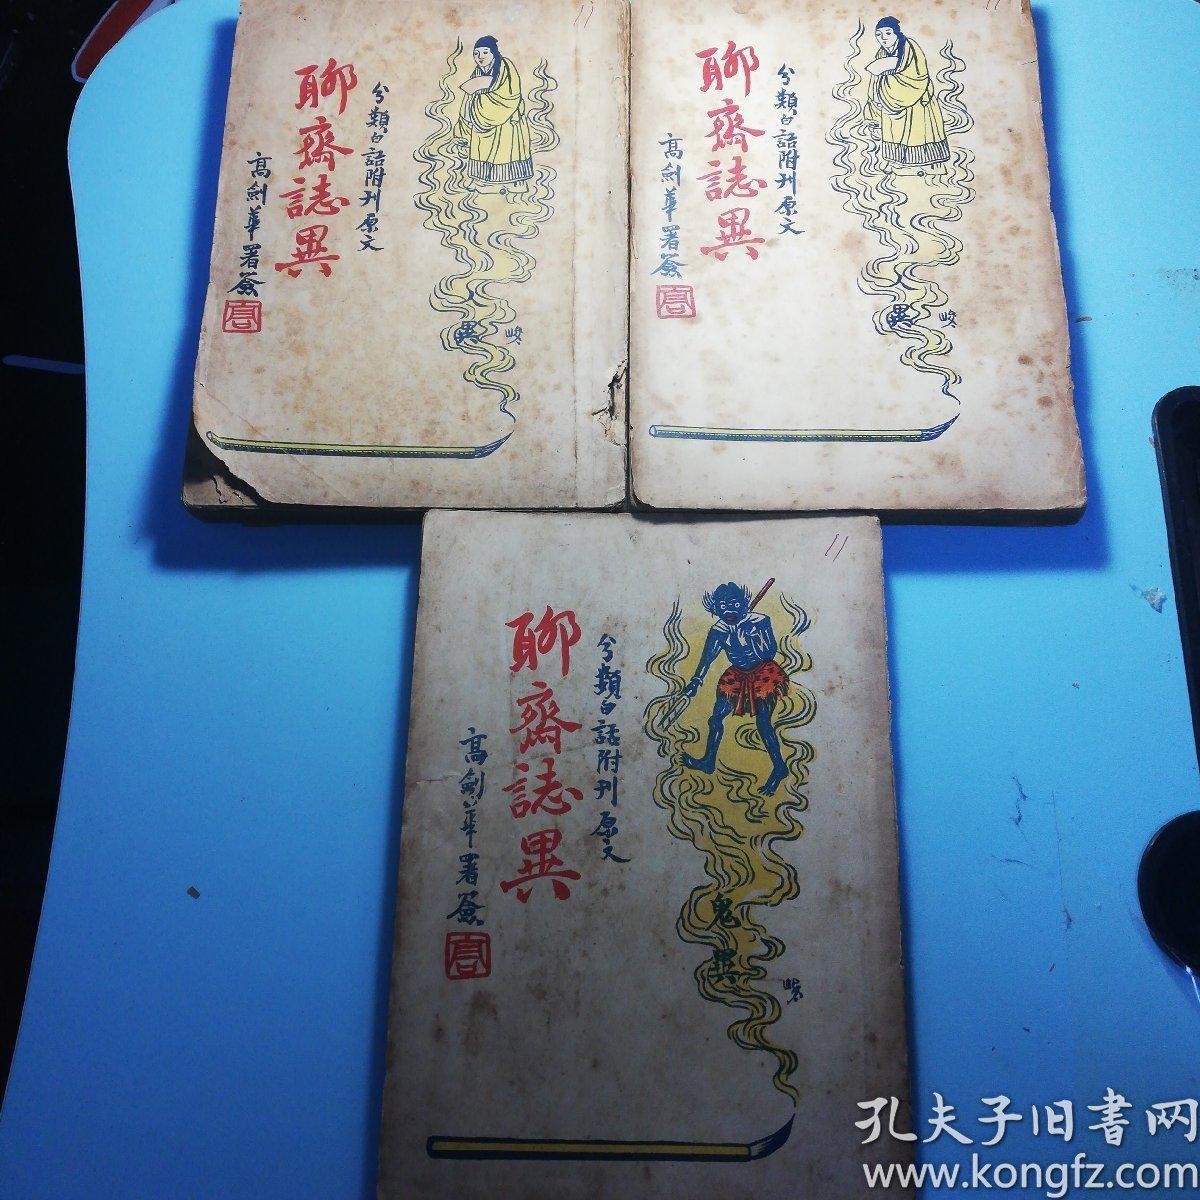 分類白話附刊原文
聊齋誌異
高劍華署簽
高
人異
11
分類白話附刊原文
聊齋誌異
高劍華署簽
高
人異
11
分類白話附刊原文
聊齋誌異
高劍華署簽
高
鬼異
孔夫子旧書网
www.kongfz.com